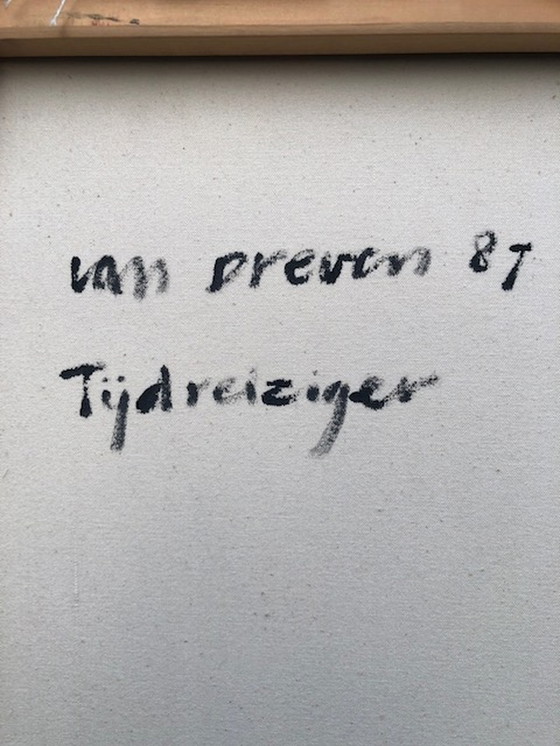 van Dreven 87
Tijdreiziger